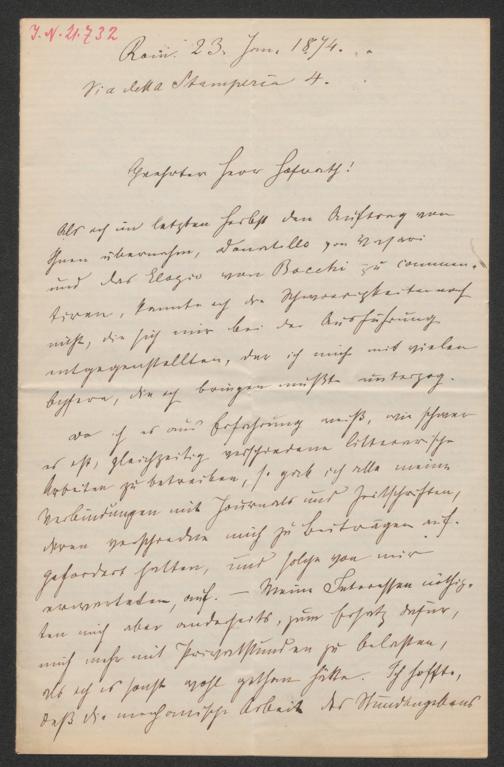 J.N. 21.732
Rom. 23. Jan. 1874.
Via della Stamperia 4.
Geehrter Herr Hofrath!
Als ich im letzten Herbst den Auftrag von
Ihnen übernahm, Donatello von Vasari
und das Elogio von Bocchi zu commen-
tiren, kannte ich die Schwierigkeiten noch
nicht, die sich mir bei der Ausführung
entgegenstellten, der ich mich mit vielen
Opfern, die ich bringen mußte unterzog.
Da ich es aus Erfahrung weiß, wie schwer
es ist, gleichzeitig verschiedene litterarische
Arbeiten zu betreiben, so gab ich alle meine
Verbindungen mit Journals und Zeitschriften,
deren verschiedene mich zu Beiträgen auf-
gefordert hatten, und solche von mir
erwarteten, auf. — Meine Interessen nöthig-
ten mich aber anderseits, zum Ersatz dafür,
mich mehr mit Privatstunden zu belasten,
als ich es sonst wohl gethan hätte. Ich hoffte,
daß die mechanische Arbeit des Stundengebens